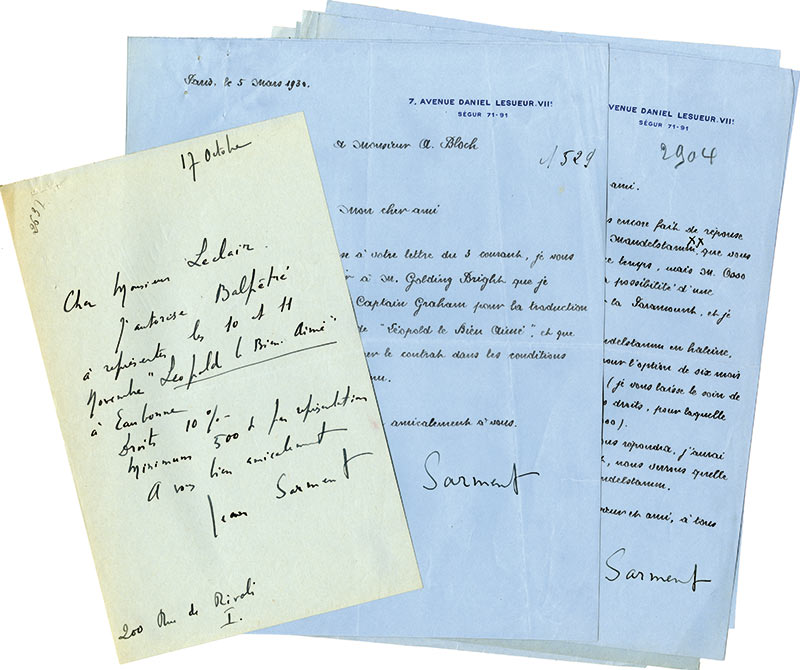 17 Octobre
Cher Monsieur Leclair.
J'autorise Balpêtré
à représenter les 10 et 11
Novembre "Leopold le Bien Aimé"
à Eaubonne
Droits 10%-
Minimum 500 par représentation
A vous bien amicalement
Jean Sarment
200 Rue de Rivoli
I.
Paris, le 5 Mars 1930.
7, AVENUE DANIEL LESUEUR. VIIe
SÉGUR 71-91
A Monsieur A. Bloch
N 529
Mon cher ami
se à votre lettre du 3 courant, je vous
à M. Golding Bright que je
Captain Graham pour la traduction
de "Léopold le Bien Aimé", et que
le contrat dans les conditions
amicalement à vous.
Sarment
VENUE DANIEL LESUEUR. VIIe
SÉGUR 71-91
2904
ami.
encore fait de réponse
Mandelstamm, que vous
ce temps, mais M.
possibilité d'une
la Paramount, et je
ndelstamm en haleine,
our l'option de six mois
(je vous laisse le soin de
droits, pour laquelle
ous répondra, j'aurai
nous verrons quelle
ndelstamm.
et ami, à vous
Sarment